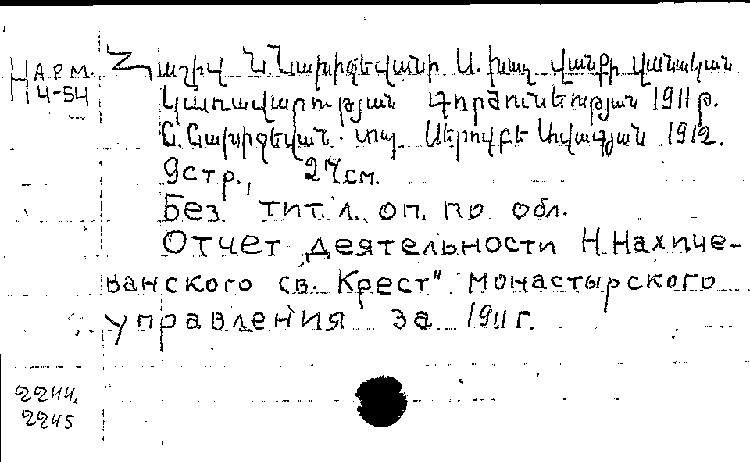 Н АРМ. 4-54
Հաշիվ Ն. Նախիջեվանի Ս. խաչ վանքի վանական
կառավարության գործունեության 1911 թ.
Ն. Նախիջեվան. տպ. Սերովբե Ավագյան 1912.
9стр., 27см.
Без тит л. оп. по обл.
Отчет деятельности Н.Нахиче-
ванского св. Крест" монастырского
управления за 1911г.
2244.
2245